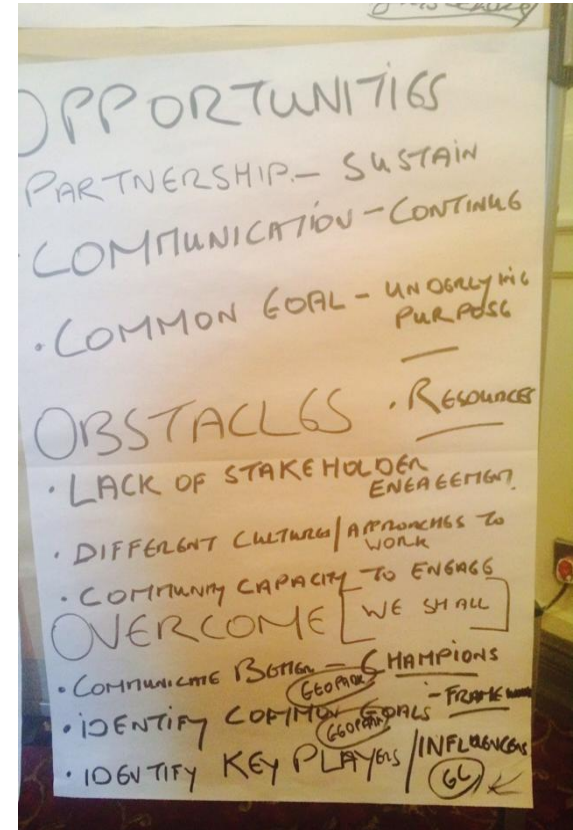 OPPORTUNITIES
PARTNERSHIP - SUSTAIN
· COMMUNICATION - CONTINUE
· COMMON GOAL - UNDERLYING
PURPOSE
OBSTACLES · RESOURCES
· LACK OF STAKEHOLDER
ENGAGEMENT.
· DIFFERENT CULTURES/APPROACHES TO
WORK
· COMMUNITY CAPACITY TO ENGAGE
OVERCOME [WE SHALL]
· COMMUNICATE BETTER - CHAMPIONS
GEOPARK
· IDENTIFY COMMON GOALS - FRAMEWORK
GEOPARK
· IDENTIFY KEY PLAYERS/INFLUENCERS
GL